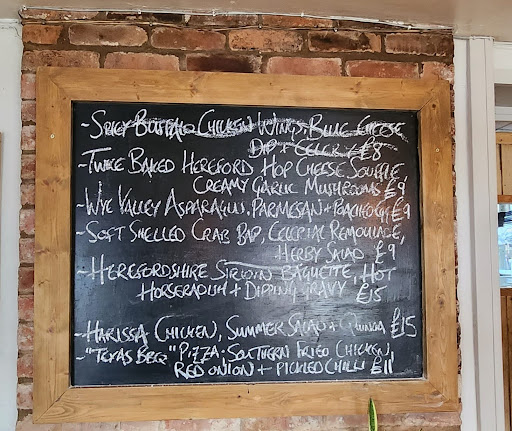 ~ Spicy Buffalo Chicken Wings, Blue Cheese,
Dip + Celery £8
~ Twice Baked Hereford Hop Cheese Souffle,
Creamy Garlic Mushrooms £9
~ Wye Valley Asparagus, Parmesan + Poached Egg £9
~ Soft Shelled Crab Bap, Celeriac Remoulade,
Herby Salad £9
~ Herefordshire Sirloin Baguette, Hot
Horseradish + Dipping Gravy £15
~ Harissa Chicken, Summer Salad + Quinoa £15
~ "Texas BBQ" Pizza. Southern Fried Chicken,
Red Onion + Pickled Chilli £11